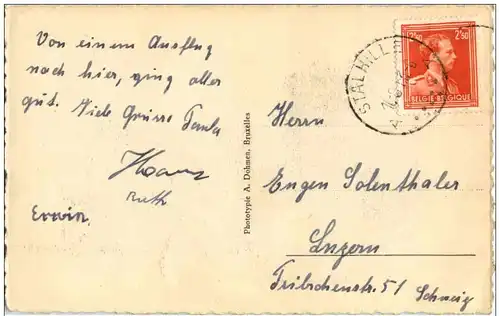 Von einem Ausflug
nach hier, ging alles
gut. Viele Grüsse Paula
Hans
Ruth
Erwin.
Phototypie A. Dohmen, Bruxelles
STALHILL
2F50 2F50
BELGIE-BELGIQUE
Herrn
Eugen Solenthaler
Luzern
Tribschenstr. 51
Schweiz